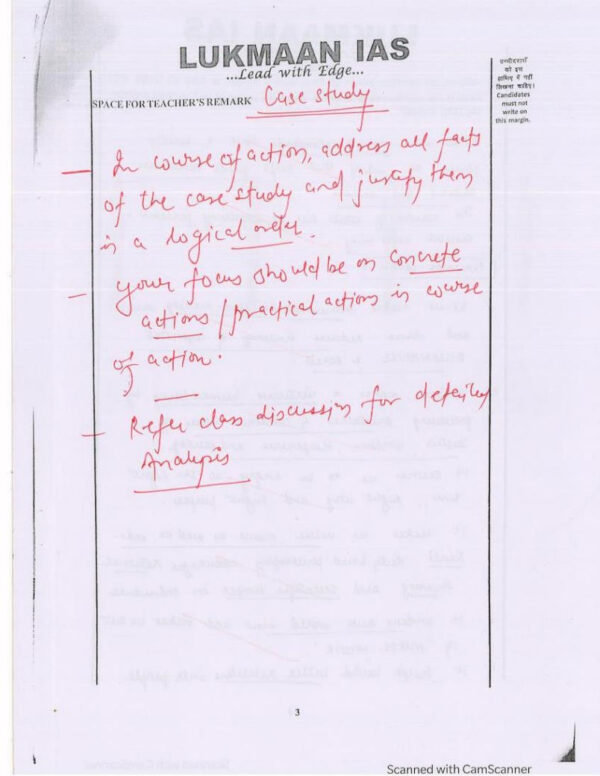 LUKMAAN IAS
...Lead with Edge...
SPACE FOR TEACHER'S REMARK Case study
उम्मीदवारों
को इस
हाशिए में नहीं
लिखना चाहिए।
Candidates
must not
write on
this margin.
— In course of action, address all facts
of the case study and justify them
in a logical order.
— your focus should be on concrete
actions / practical actions in course
of action.
— Refer class discussion for detailed
Analysis
3
Scanned with CamScanner